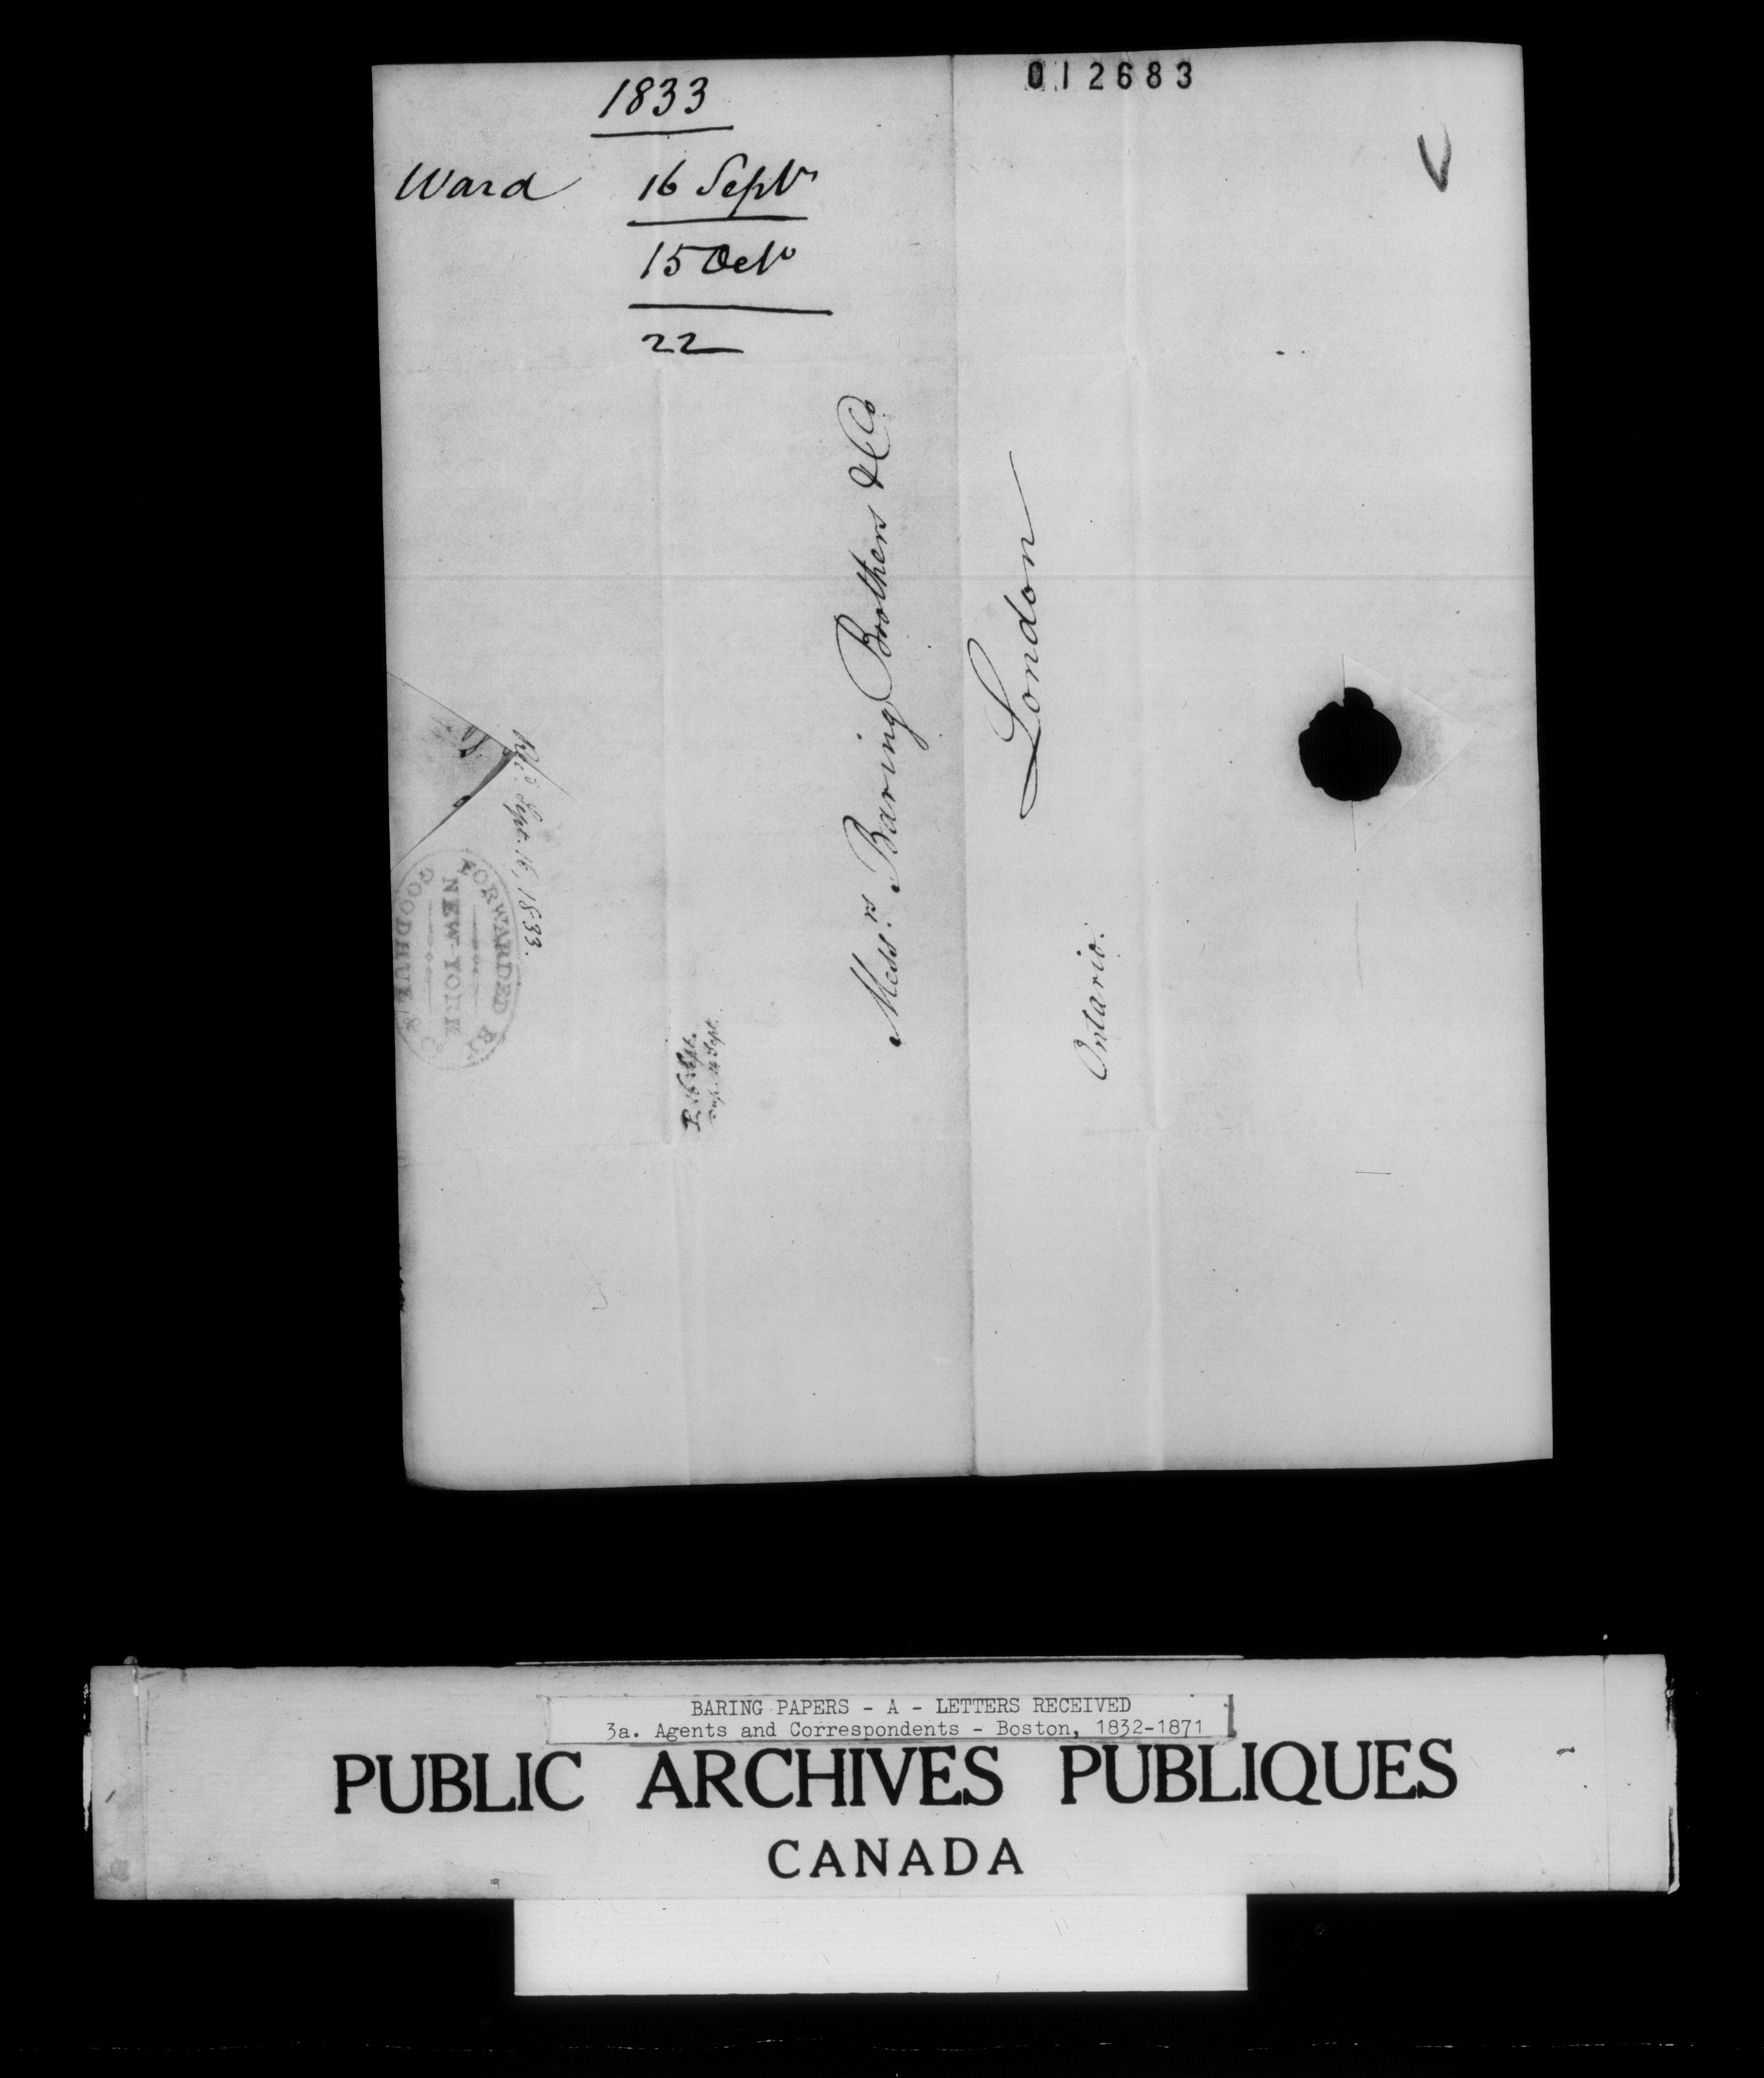 012683
1833
Ward 16 Septr
15 Octo
22
Messrs. Baring Brothers & Co.
London
Ontario.
Recd. Sept. 16, 1833.
FORWARDED BY
NEW-YORK
GOODHUE & Co
16 Sept.
Sept.
BARING PAPERS - A - LETTERS RECEIVED
3a. Agents and Correspondents - Boston, 1832-1871
PUBLIC ARCHIVES PUBLIQUES
CANADA